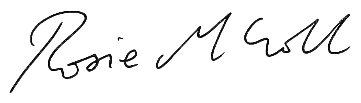 Rosie McColl